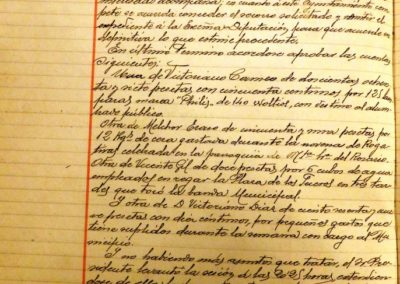 pete se acuerda conceder el socorro solicitado y remitir el
expediente a la Excma. Diputación, para que acuerde en
definitiva lo que estime procedente.
En último termino acordose aprobar las cuentas
siguientes:
Una de Victoriano Carneo de doscientas ochen
ta y siete pesetas con cincuenta centimos por 125 lám
paras marca "Philis" de 40 Wattios, con destino al alum
brado público.
Otra de Melchor Eraso de cincuenta y una pesetas por
12 Kgs de cera gastava durante la novena de Roga
tivas celebrada en la parroquia de Ntra. Sra. del Rosario.
Otra de Vicente Gil de doce pesetas por 6 cubos de agua
empleados en regar la Plaza de los Fueros en tres tar
des que tocó la banda Municipal.
Y otra de D. Victoriano Diaz de ciento noventa y nue
ve pesetas con diez centimos, por pequeños gastos que
tiene suplidos durante la semana con cargo al Mu
nicipio.
Y no habiendo más asuntos que tratar, el Sr. Pre
sidente levantó la sesión a las 20'25 horas, extendien
dose de ella